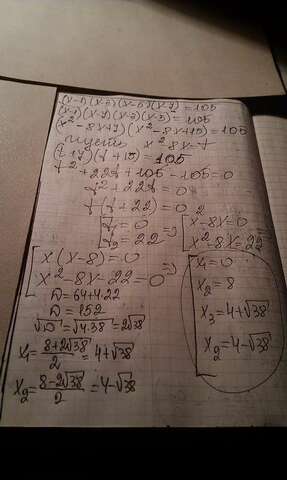 (x-1)(x-3)(x-5)(x-7)=105
(x-1)(x-7)(x-3)(x-5)=105
(x²-8x+7)(x²-8x+15)=105
пусть x²-8x=t
(t+7)(t+15)=105
t²+22t+105-105=0
t²+22t=0
t(t+22)=0
t₁=0
t₂=22
⇒
x²-8x=0
x²-8x=22
x(x-8)=0
x²-8x-22=0
⇒
D=64+4·22
D=152
√D=√4·38=2√38
x₁=(8+2√38)/2=4+√38
x₂=(8-2√38)/2=4-√38
x₁=0
x₂=8
x₃=4+√38
x₂=4-√38